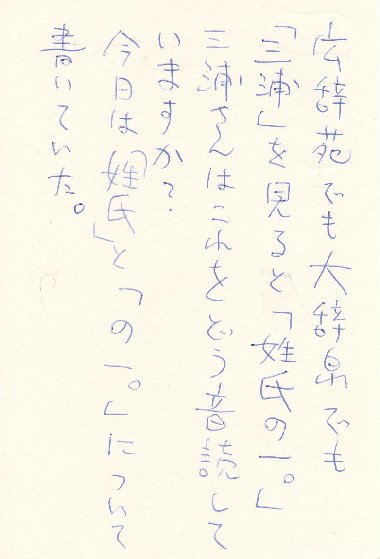 広辞苑でも大辞泉でも
「三浦」を見ると「姓氏の一。」
三浦さんはこれをどう音読して
いますか？
今日は「姓氏」と「の一。」について
書いていた。